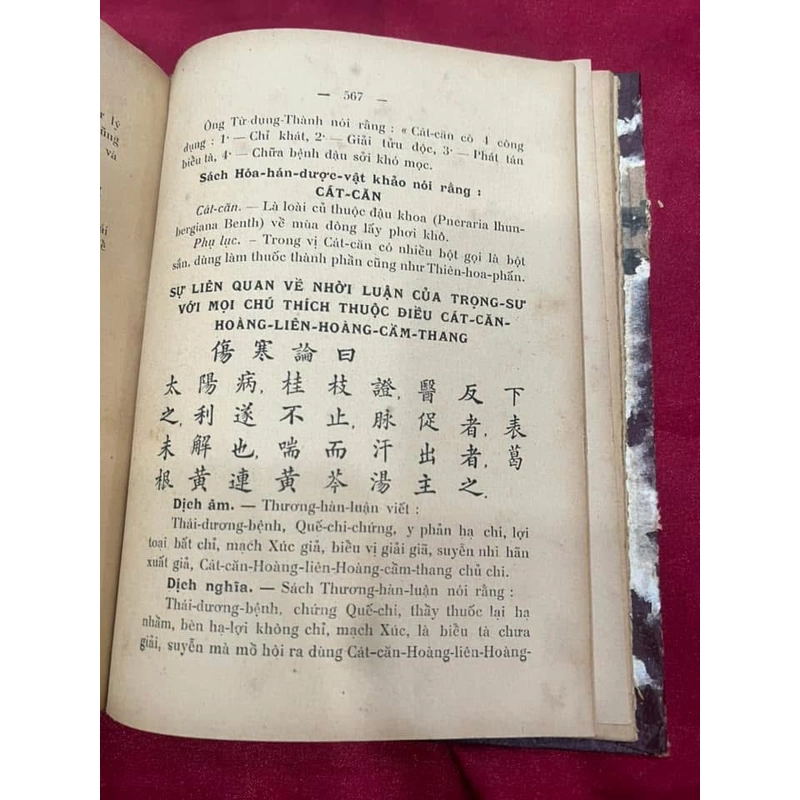 — 567 —
Ông Từ-dung-Thành nói rằng : « Cát-căn có 4 công
dụng : 1· — Chỉ khát, 2· — Giải tửu độc, 3· — Phát tán
biểu tà, 4· — Chữa bệnh đậu sởi khó mọc.
Sách Hóa-hán-dược-vật khảo nói rằng :
CÁT-CĂN
Cát-căn. — Là loài củ thuộc đậu khoa (Pneraria Ihun-
bergiana Benth) về mùa đông lấy phơi khô.
Phụ lục. – Trong vị Cát-căn có nhiều bột gọi là bột
sắn, dùng làm thuốc thành phần cũng như Thiên-hoa-phấn.
SỰ LIÊN QUAN VỀ NHỜI LUẬN CỦA TRỌNG-SƯ
VỚI MỌI CHÚ THÍCH THUỘC ĐIỀU CÁT-CĂN-
HOÀNG-LIÊN-HOÀNG-CẦM-THANG
傷寒論曰
太陽病, 桂枝證, 醫反下
之, 利遂不止, 脉促者, 表
未解也, 喘而汗出者, 葛
根黃連黃芩湯主之,
Dịch âm. — Thương-hàn-luận viết :
Thái-dương-bệnh, Quế-chi-chứng, y phản hạ chi, lợi
toại bất chỉ, mạch Xúc giả, biểu vị giải giã, suyễn nhi hãn
xuất giả, Cát-căn-Hoàng-liên-Hoàng-cầm-thang chủ chi.
Dịch nghĩa. — Sách Thương-hàn-luận nói rằng :
Thái-dương-bệnh, chứng Quế-chi, thầy thuốc lại hạ
nhầm, bèn hạ-lợi không chỉ, mạch Xúc, là biểu tà chưa
giải, suyễn mà mồ hôi ra dùng Cát-căn-Hoàng-liên-Hoàng-